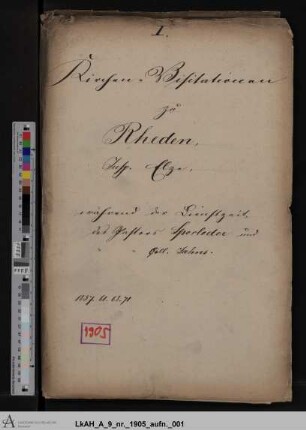 I.
Kirchen-Visitationen
zu
Rheden,
Insp. Elze.
während der Dienstzeit
des Pastors Sporleder und
1857. 61. 65. 71
1905
LkAH_A_9_nr._1905_aufn._001